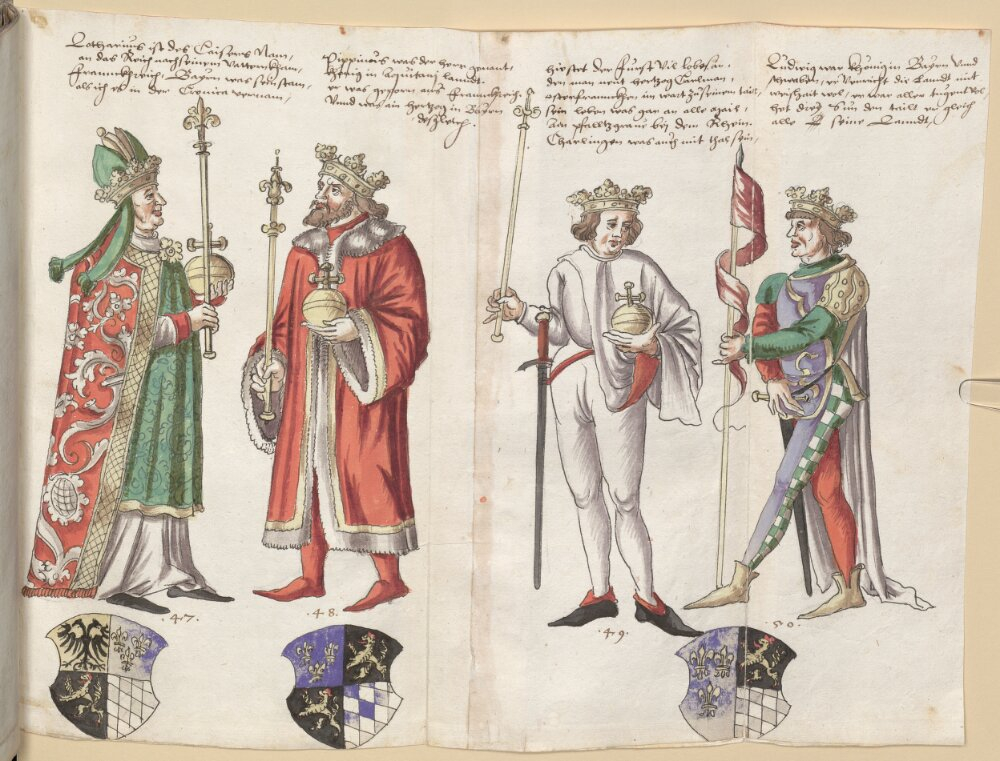 Lotharius ist des Kaisers Nam,
an das Reich nach seinem Vatter kham,
Franckhreich, Bayrn was sein stam,
als ich es in der Cronica vernam,
Pippinus was der herr genant,
Khönig in Aquitanj landt.
er was geporn aus Franckhreich,
Vnnd was ain hertzog in Bayrn
des gleich.
hie stet der Fürst vil lobesan,
den man nent hertzog Carlman,
osterfranckhen im wart zu seinem tail,
sein leben was gar an alle mail,
Ain pfalltzgraue bei dem Rhein,
Charlingen was auch mit thal sein,
Ludwig war khönig in Bayrn Vnnd
Schwaben, er die Landt mit
weishait wol, er war aller tugent vol
het drej Sün den taillt er gleich
alle seine Lanndt,
.47.
.48.
.49.
.50.